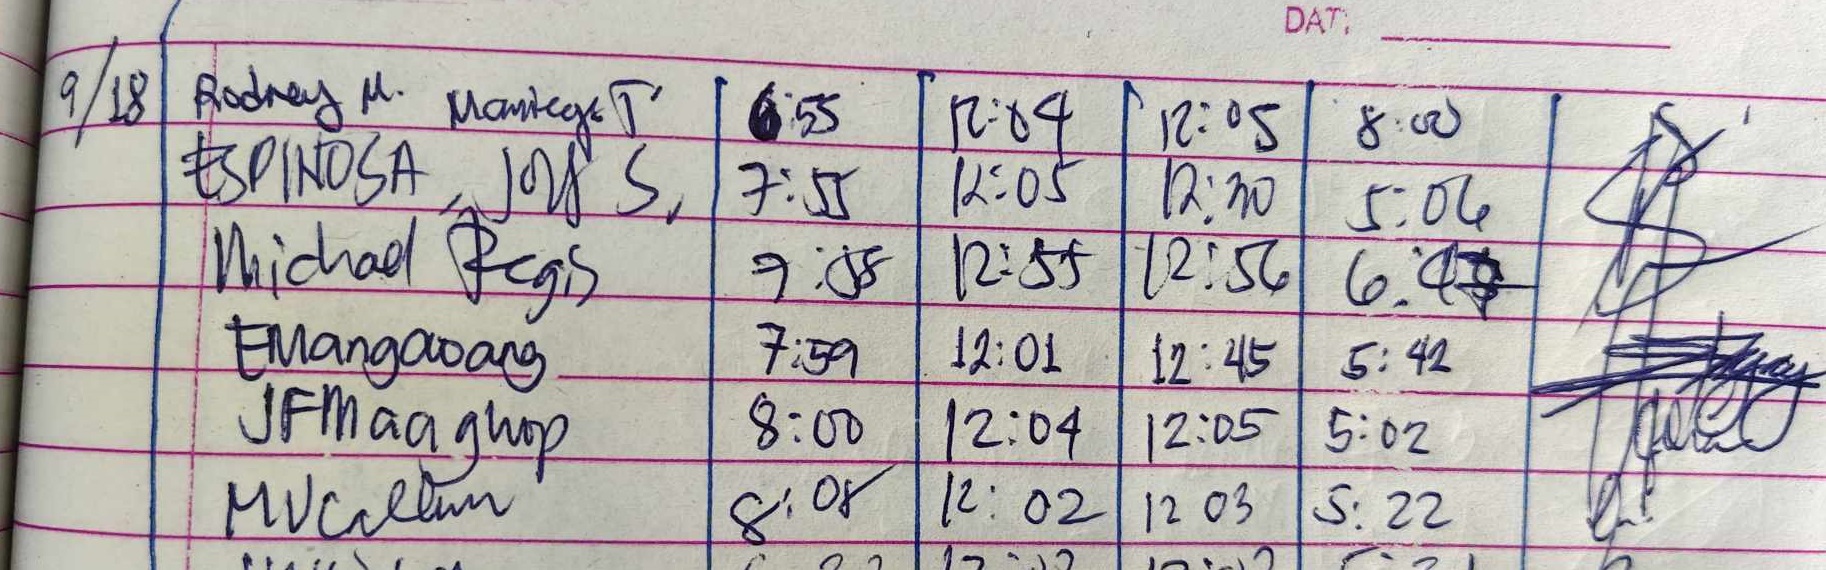 DAT:
9/18 Rodney M. 6:55 12:04 12:05 8:00
ESPINOSA, JOY S, 7:55 12:05 12:30 5:06
Michael Regis 12:55 12:56
EMangaoang 7:59 12:01 12:45 5:42
JFMaaghop 8:00 12:04 12:05 5:02
8:08 12:02 12 03 5:22